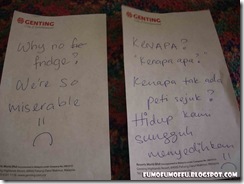 GENTING
Why no
fridge?
We're so
miserable
!!
GENTING
KENAPA?
"Kenapa apa?"
Kenapa tak ada
peti sejuk?
Hidup kami
sungguh
menyedihkan
!!
EUMOEUMOEFU.BLOGSPOT.COM